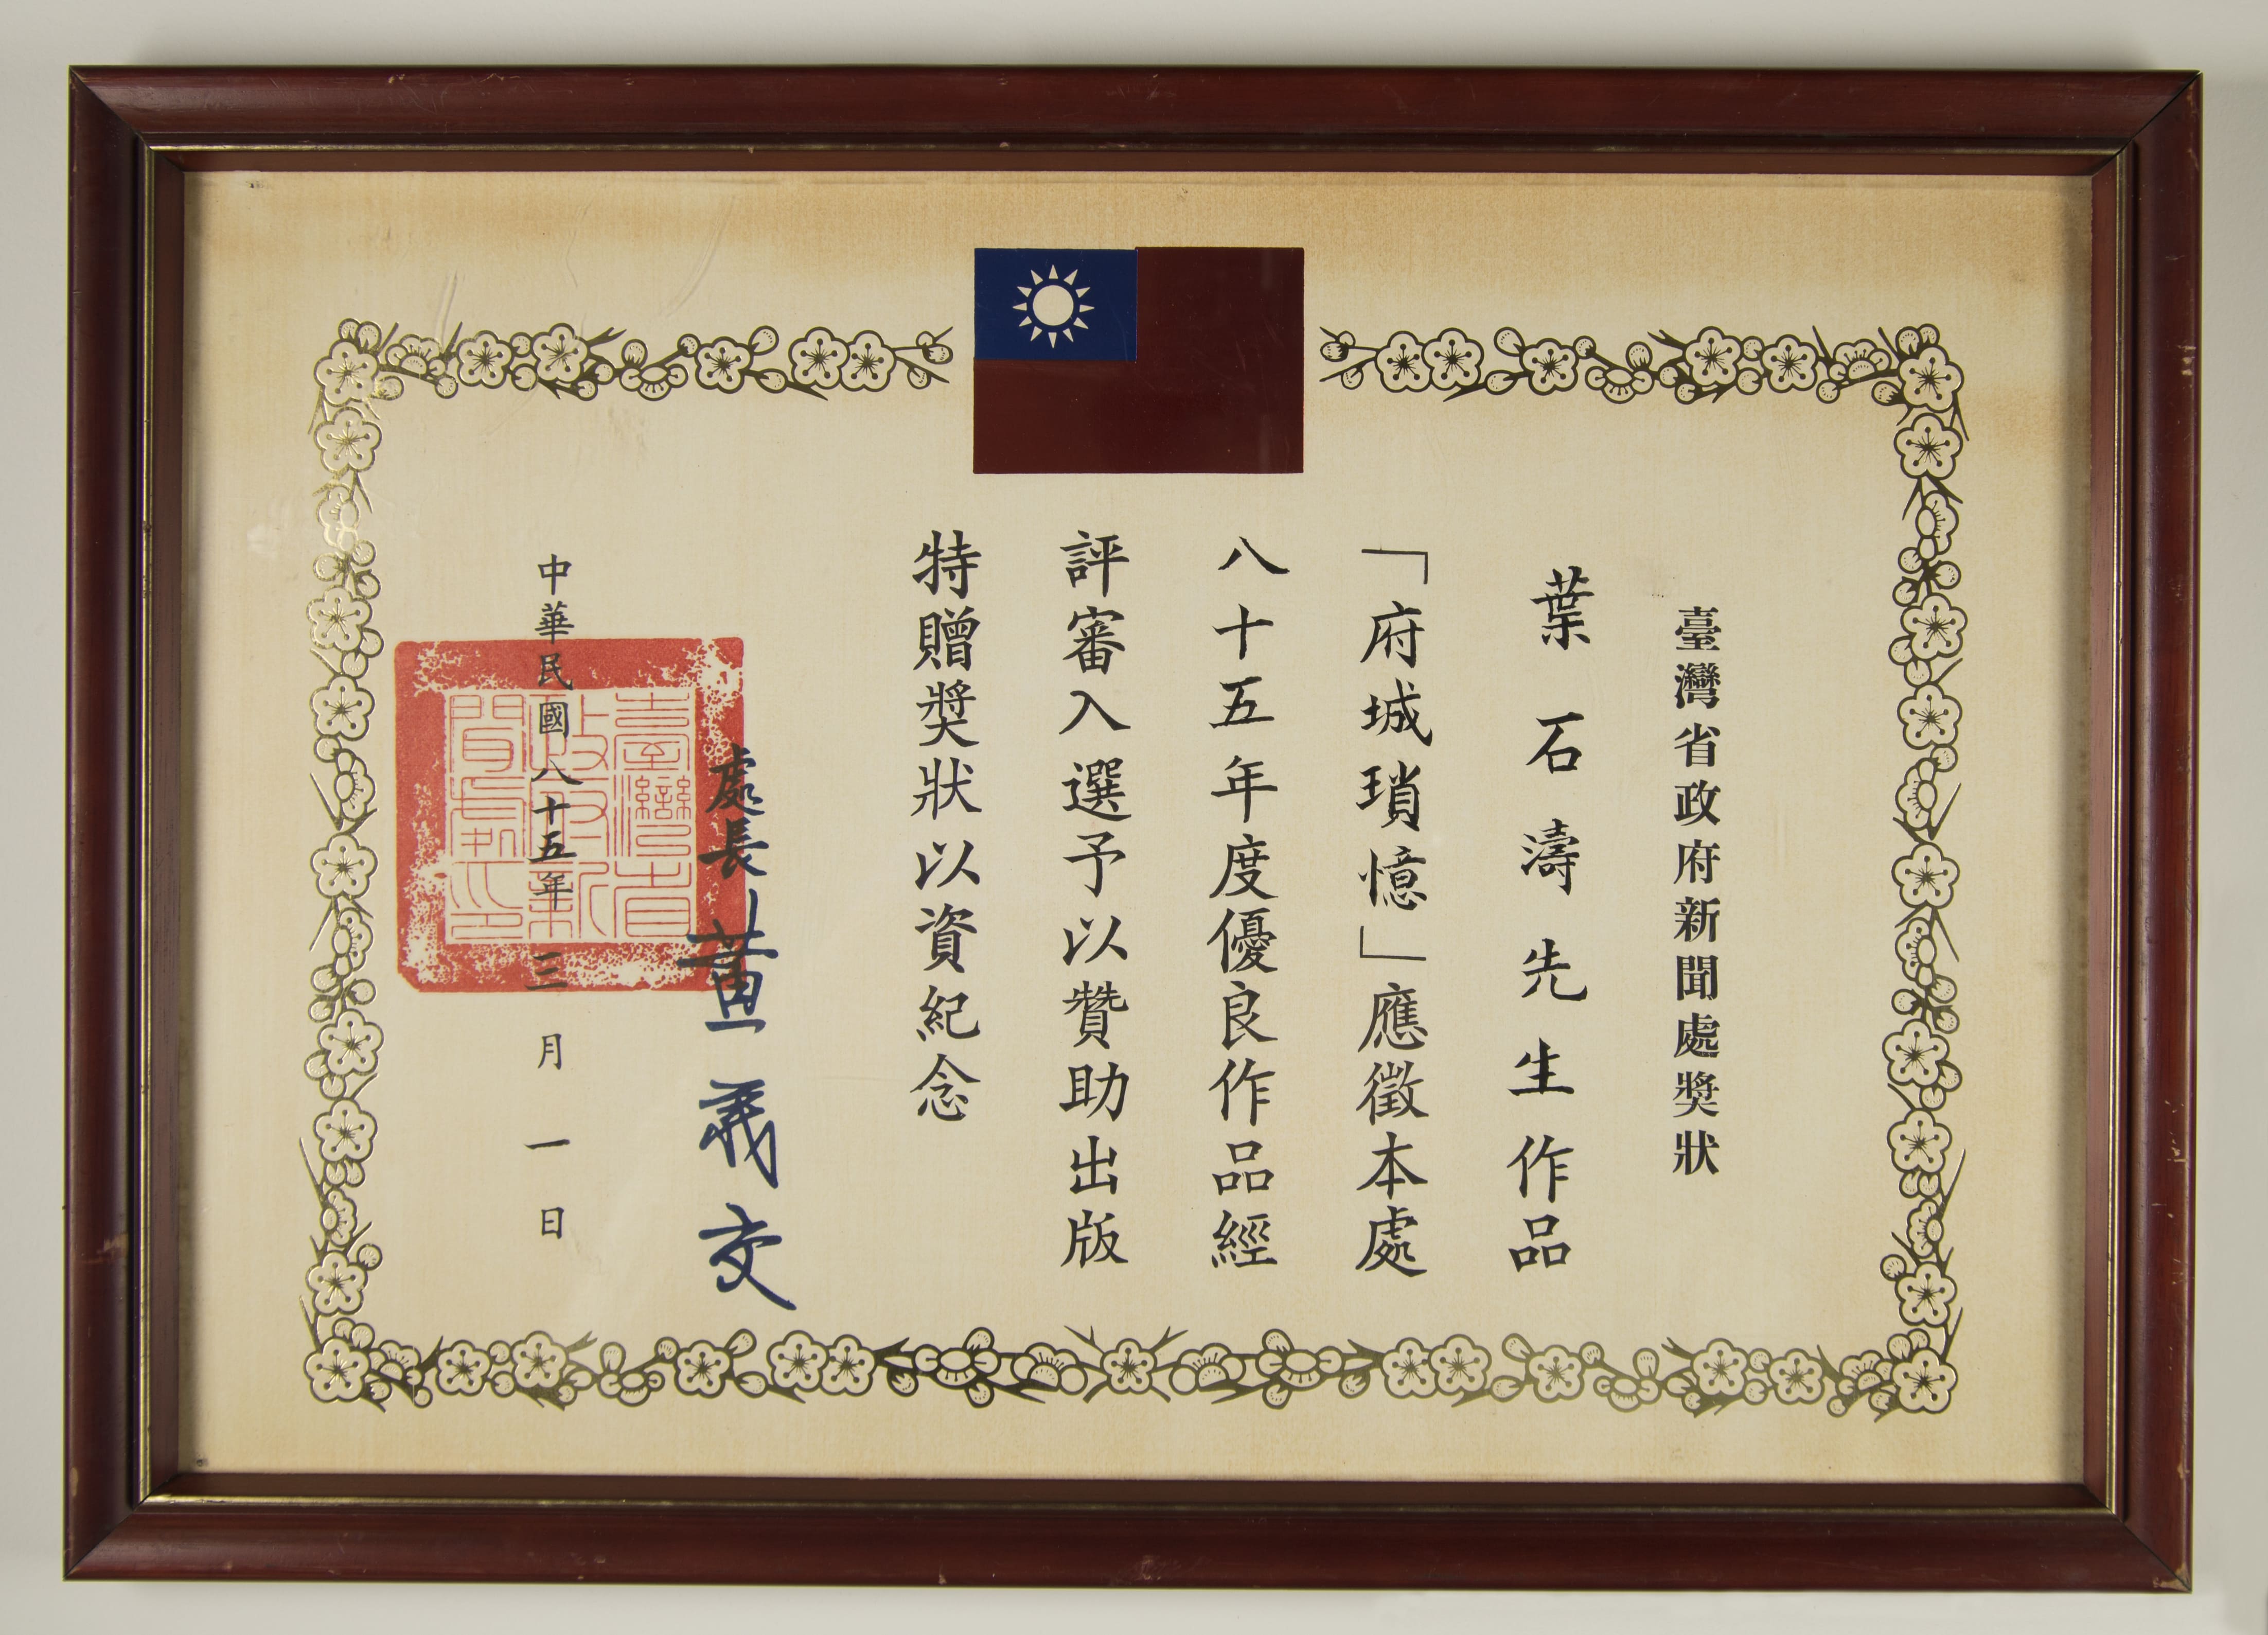 臺灣省政府新聞處獎狀
葉石濤先生作品
「府城瑣憶」應徵本處
八十五年度優良作品經
評審入選予以贊助出版
特贈獎狀以資紀念
處長 黃義交
中華民國八十五年三月一日
臺灣省政府新聞處印